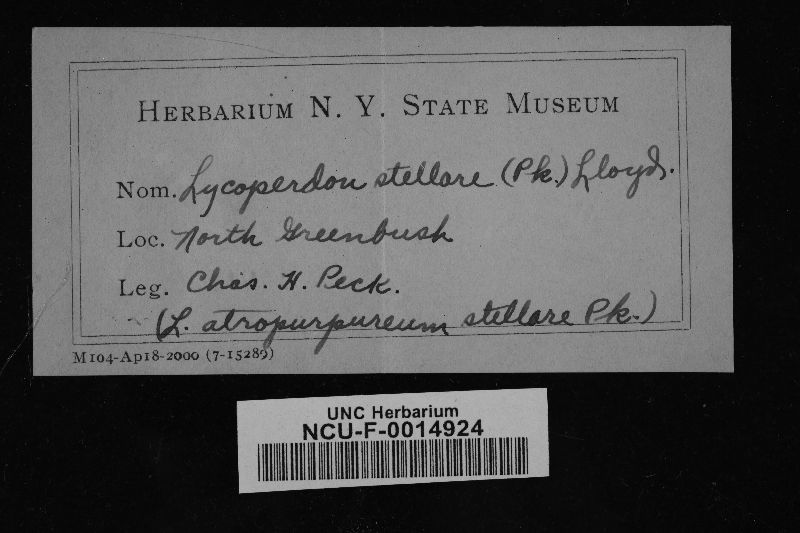 HERBARIUM N. Y. STATE MUSEUM
Nom. Lycoperdon stellare (Pk.) Lloyd.
Loc. North Greenbush
Leg. Chas. H. Peck.
(L. atropurpureum stellare Pk.)
M104-Ap18-2000 (7-15289)
UNC Herbarium
NCU-F-0014924